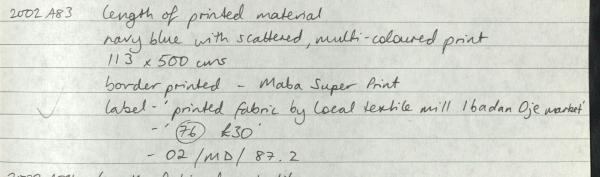 2002 A83 length of printed material
navy blue with scattered, multi-coloured print
113 x 500 cms
border printed - Maba Super Print
label - 'printed fabric by local textile mill Ibadan Oje market'
- '76 £30'
- 02/MD/87.2